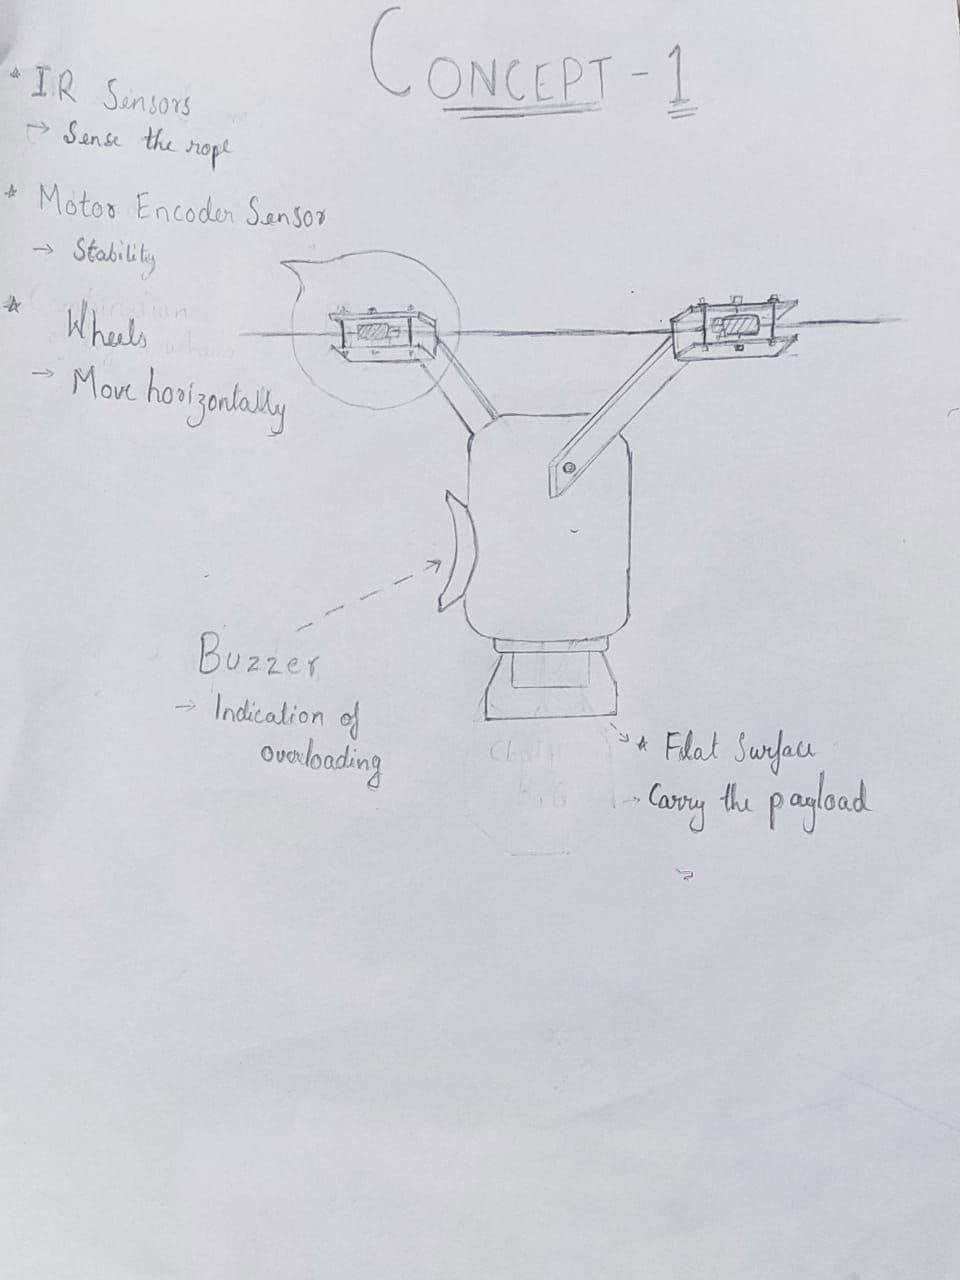 CONCEPT - 1
* IR Sensors
→ Sense the rope
* Motor Encoder Sensor
→ Stability
* Wheels
→ Move horizontally
Buzzer
→ Indication of
overloading
* Flat Surface
→ Carry the payload